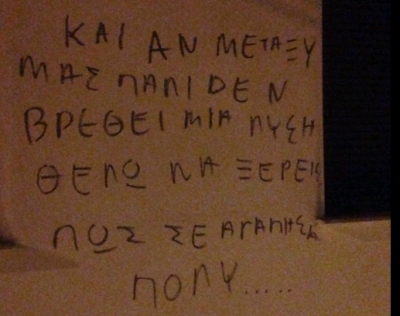 ΚΑΙ ΑΝ ΜΕΤΑΞΥ
ΜΑΣ ΠΑΛΙ ΔΕΝ
ΒΡΕΘΕΙ ΜΙΑ ΛΥΣΗ
ΘΕΛΩ ΝΑ ΞΕΡΕΙΣ
ΠΩΣ ΣΕ ΑΓΑΠΗΣΑ
ΠΟΛΥ.....